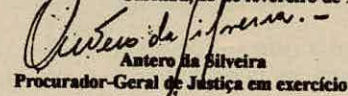 de fevereiro de
Antero da Silveira. -
Antero da Silveira
Procurador-Geral de Justiça em exercício